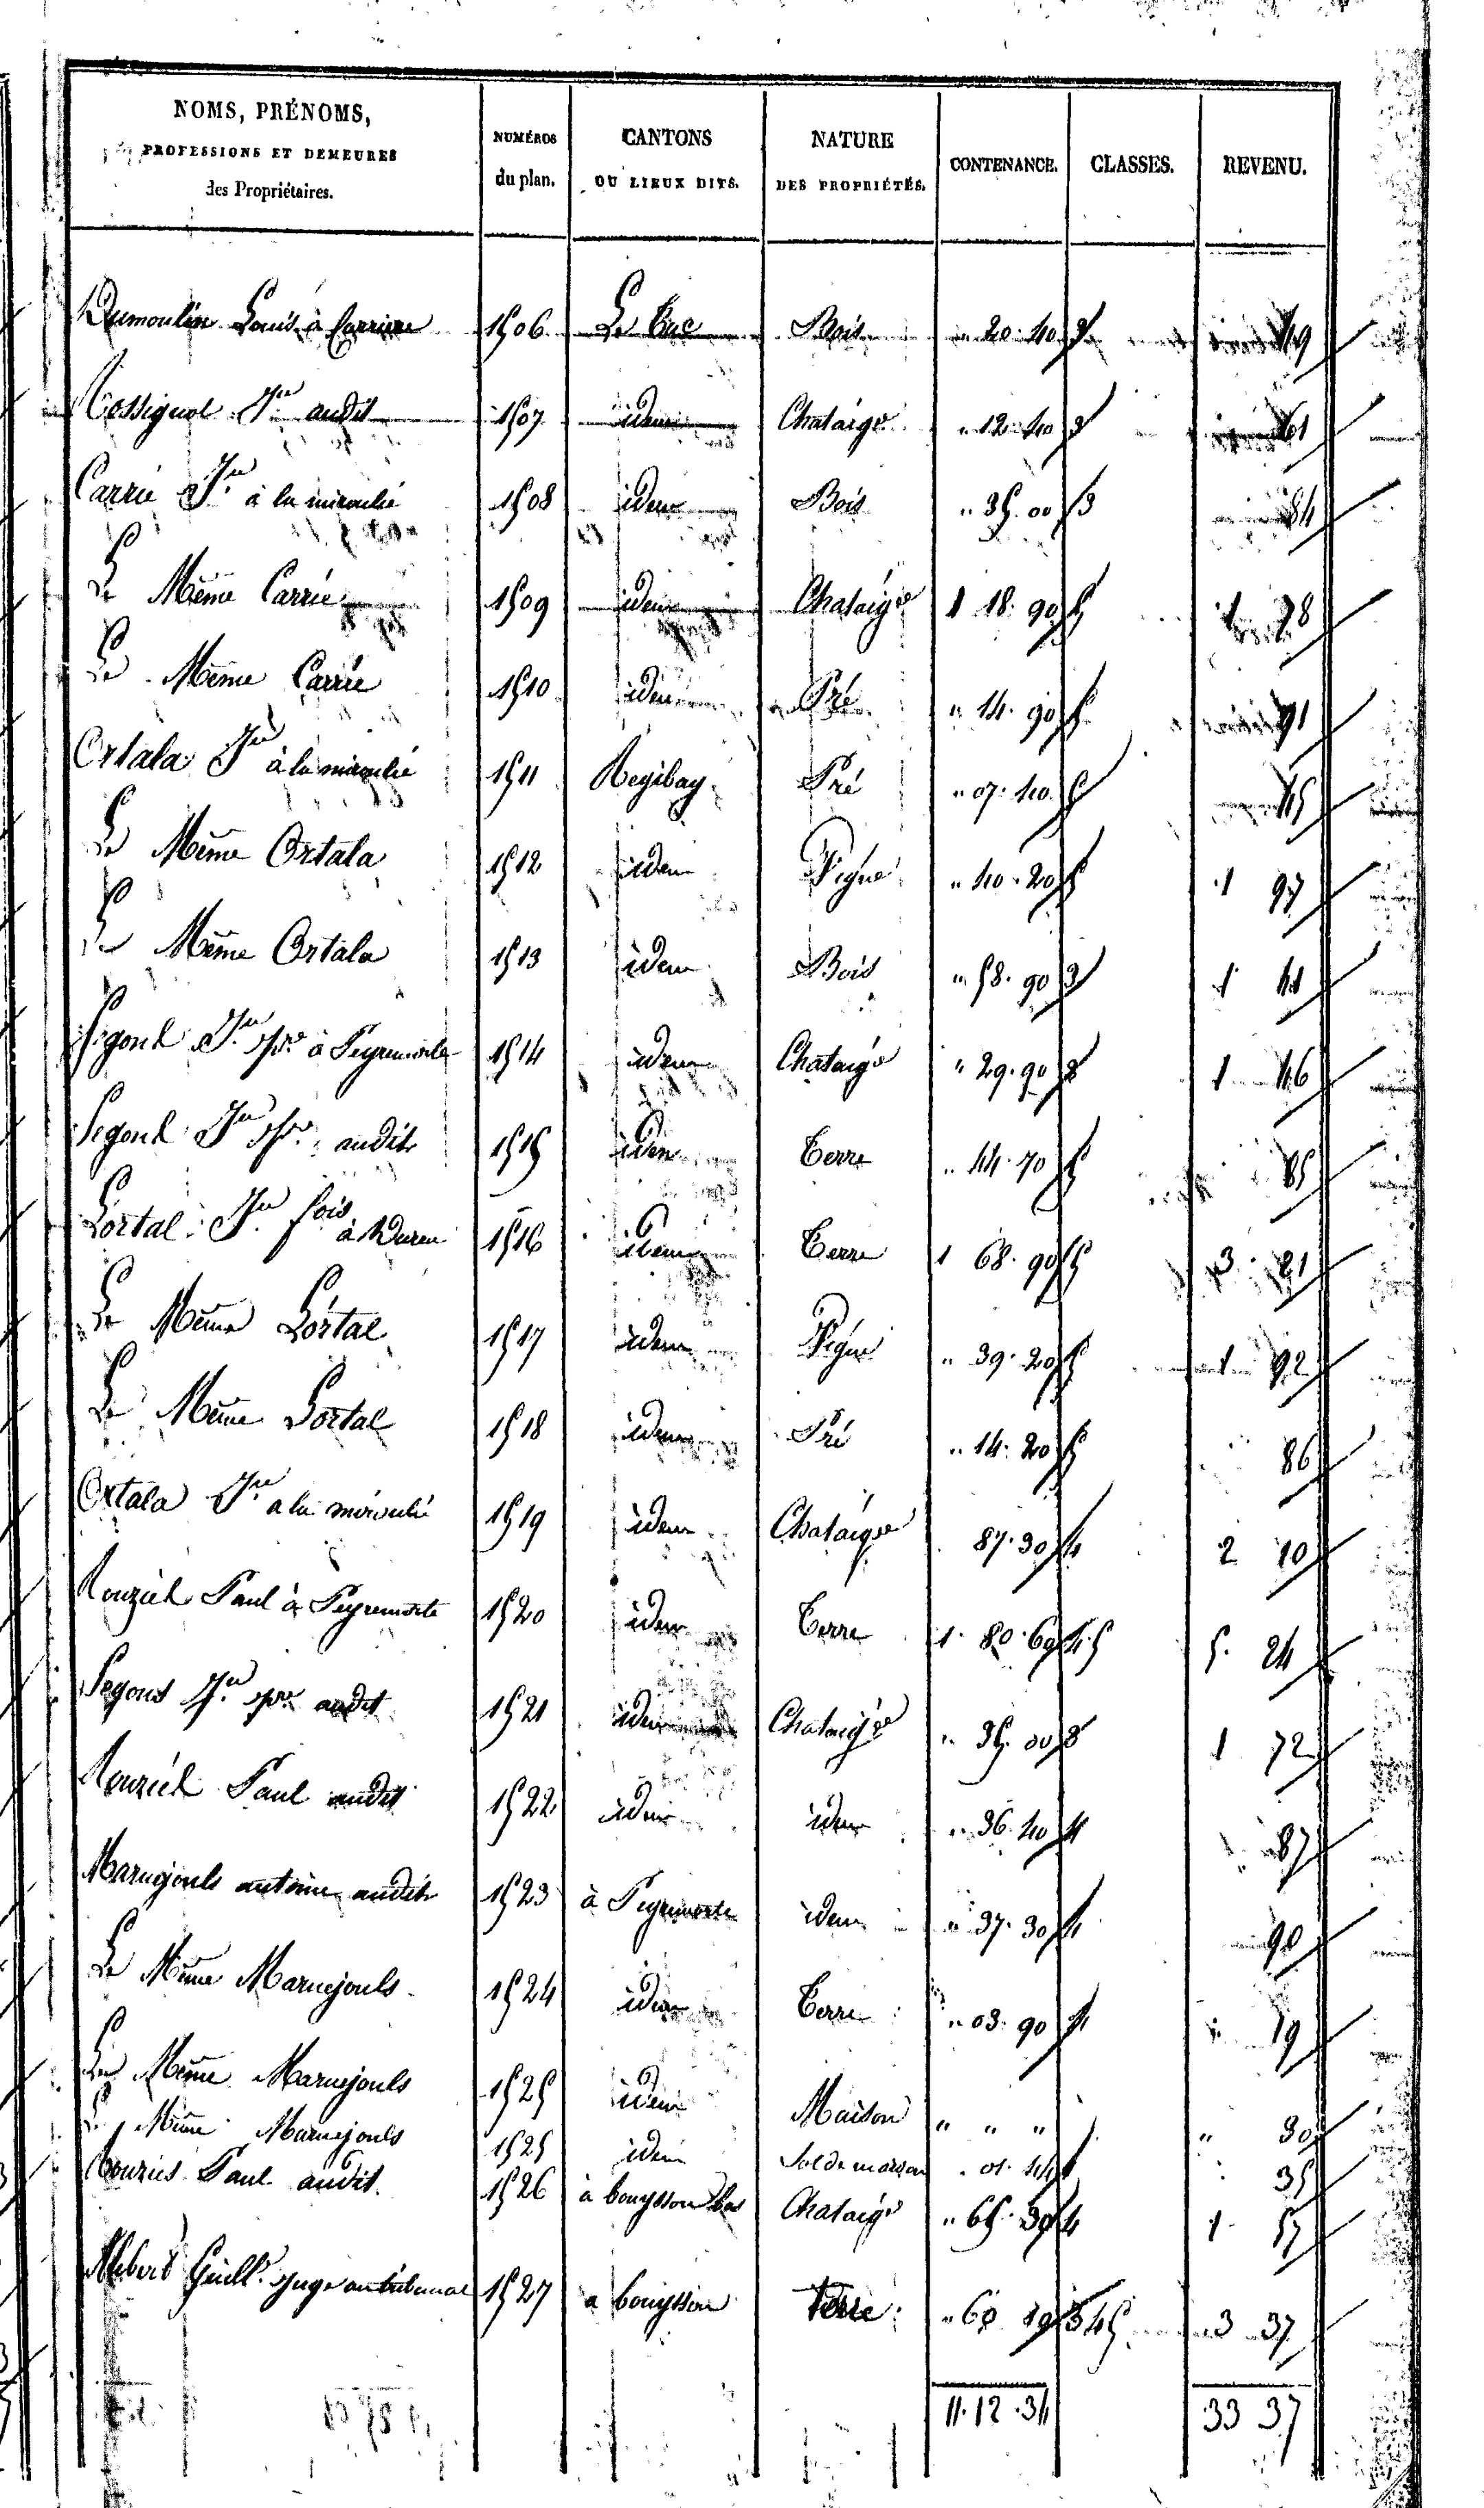 NOMS, PRÉNOMS, PROFESSIONS ET DEMEURES des Propriétaires. NUMÉROS du plan. CANTONS OU LIEUX DITS. NATURE DES PROPRIÉTÉS. CONTENANCE. CLASSES. REVENU.
Dumoulin Louis à Carriere 1506 Le Buc Bois " 20. 40 3 49
Rossignol Jn audit 1507 idem Chataigre " 12. 40 3 61
Carrié Jn à la miroulié 1508 idem Bois " 35. 00 3 84
Le Même Carrié 1509 idem Chataigre 1 18. 90 5 1 78
Le Même Carrié 1510 idem Pré " 14. 90 5 91
Ortala Jn à la miroulié 1511 Regibay Pré " 07. 40 5 45
Le Même Ortala 1512 idem Vigne " 40. 20 5 1 97
Le Même Ortala 1513 idem Bois " 58. 90 3 1 41
Segond Jn Pre à Peyremorte 1514 idem Chataigre " 29. 90 3 1 46
Segond Jn Pre audit 1515 idem Terre " 44. 70 5 85
Lortal Jn fois à Dureu 1516 idem Terre 1 68. 90 5 3 21
Le Même Lortal 1517 idem Vigne " 39. 20 5 1 92
Le Même Lortal 1518 idem Pré " 14. 20 5 86
Ortala Jn a la miroulié 1519 idem Chataigre 87. 30 4 2 10
Rouziès Paul à Peyremorte 1520 idem Terre 1. 80. 60 4.5 5. 24
Segond Jn Pre audit 1521 idem Chataigre " 35. 00 3 1 72
Rouziès Paul audit 1522 idem idem " 36. 40 4 87
Maruejouls antoine audit 1523 à Peyremorte idem " 37. 30 4 90
Le Même Maruejouls 1524 idem Terre " 03. 90 4 19
Le Même Maruejouls 1525 idem Maison " " " " 30
Le Même Maruejouls 1525 idem Sol de maison . 01. 44 1 35
Rouziès Paul audit. 1526 à bouysson bas Chataigre " 65. 30 4 1 57
Alibert Guille. Juge au tribunal 1527 a bouysson Terre " 60 10 3 4 5 3 37
11. 12. 34 33 37